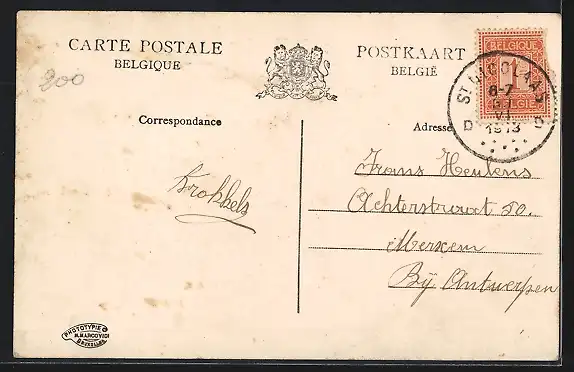 CARTE POSTALE
BELGIQUE
POSTKAART
BELGIË
200
BELGIQUE
1
BELGIË
ST NICOLAAS
6-7
VI
1913
D D
Correspondance
Adresse
Frans Heulens
Achterstraat 50.
Merxem
Bÿ Antwerpen
Krokkels
PHOTOTYPIE
M. MARCOVICI
BRUXELLES